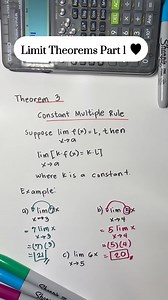 Limit Theorems Part 1 🖤
Theorem 3
Constant Multiple Rule
Suppose lim f(x) = L, then
x→a
lim [k·f(x) = k·L]
x→a
where k is a constant.
Example:
a) lim 7x
x→3
= 7 lim x
x→3
= (7)(3)
= 21
b) lim 5x
x→4
= 5 lim x
x→4
= (5)(4)
= 20
c) lim 6x
x→5
Sharpie